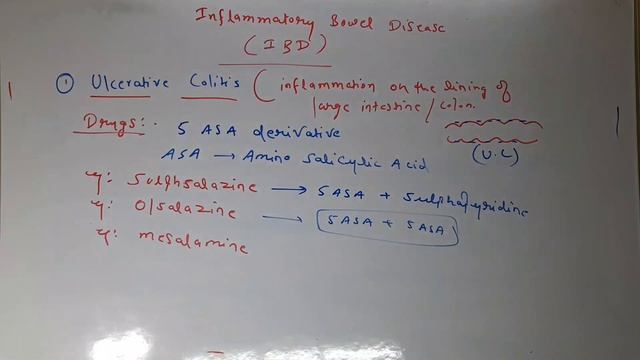 Inflammatory Bowel Disease
(IBD)
① Ulcerative Colitis (inflammation on the lining of
large intestine / colon.
Drugs:-
5 ASA derivative
(U.C)
ASA → Amino Salicylic Acid
eg: Sulphsalazine → 5ASA + Sulphapyridine
eg: Olsalazine → 5ASA + 5ASA
eg: mesalamine